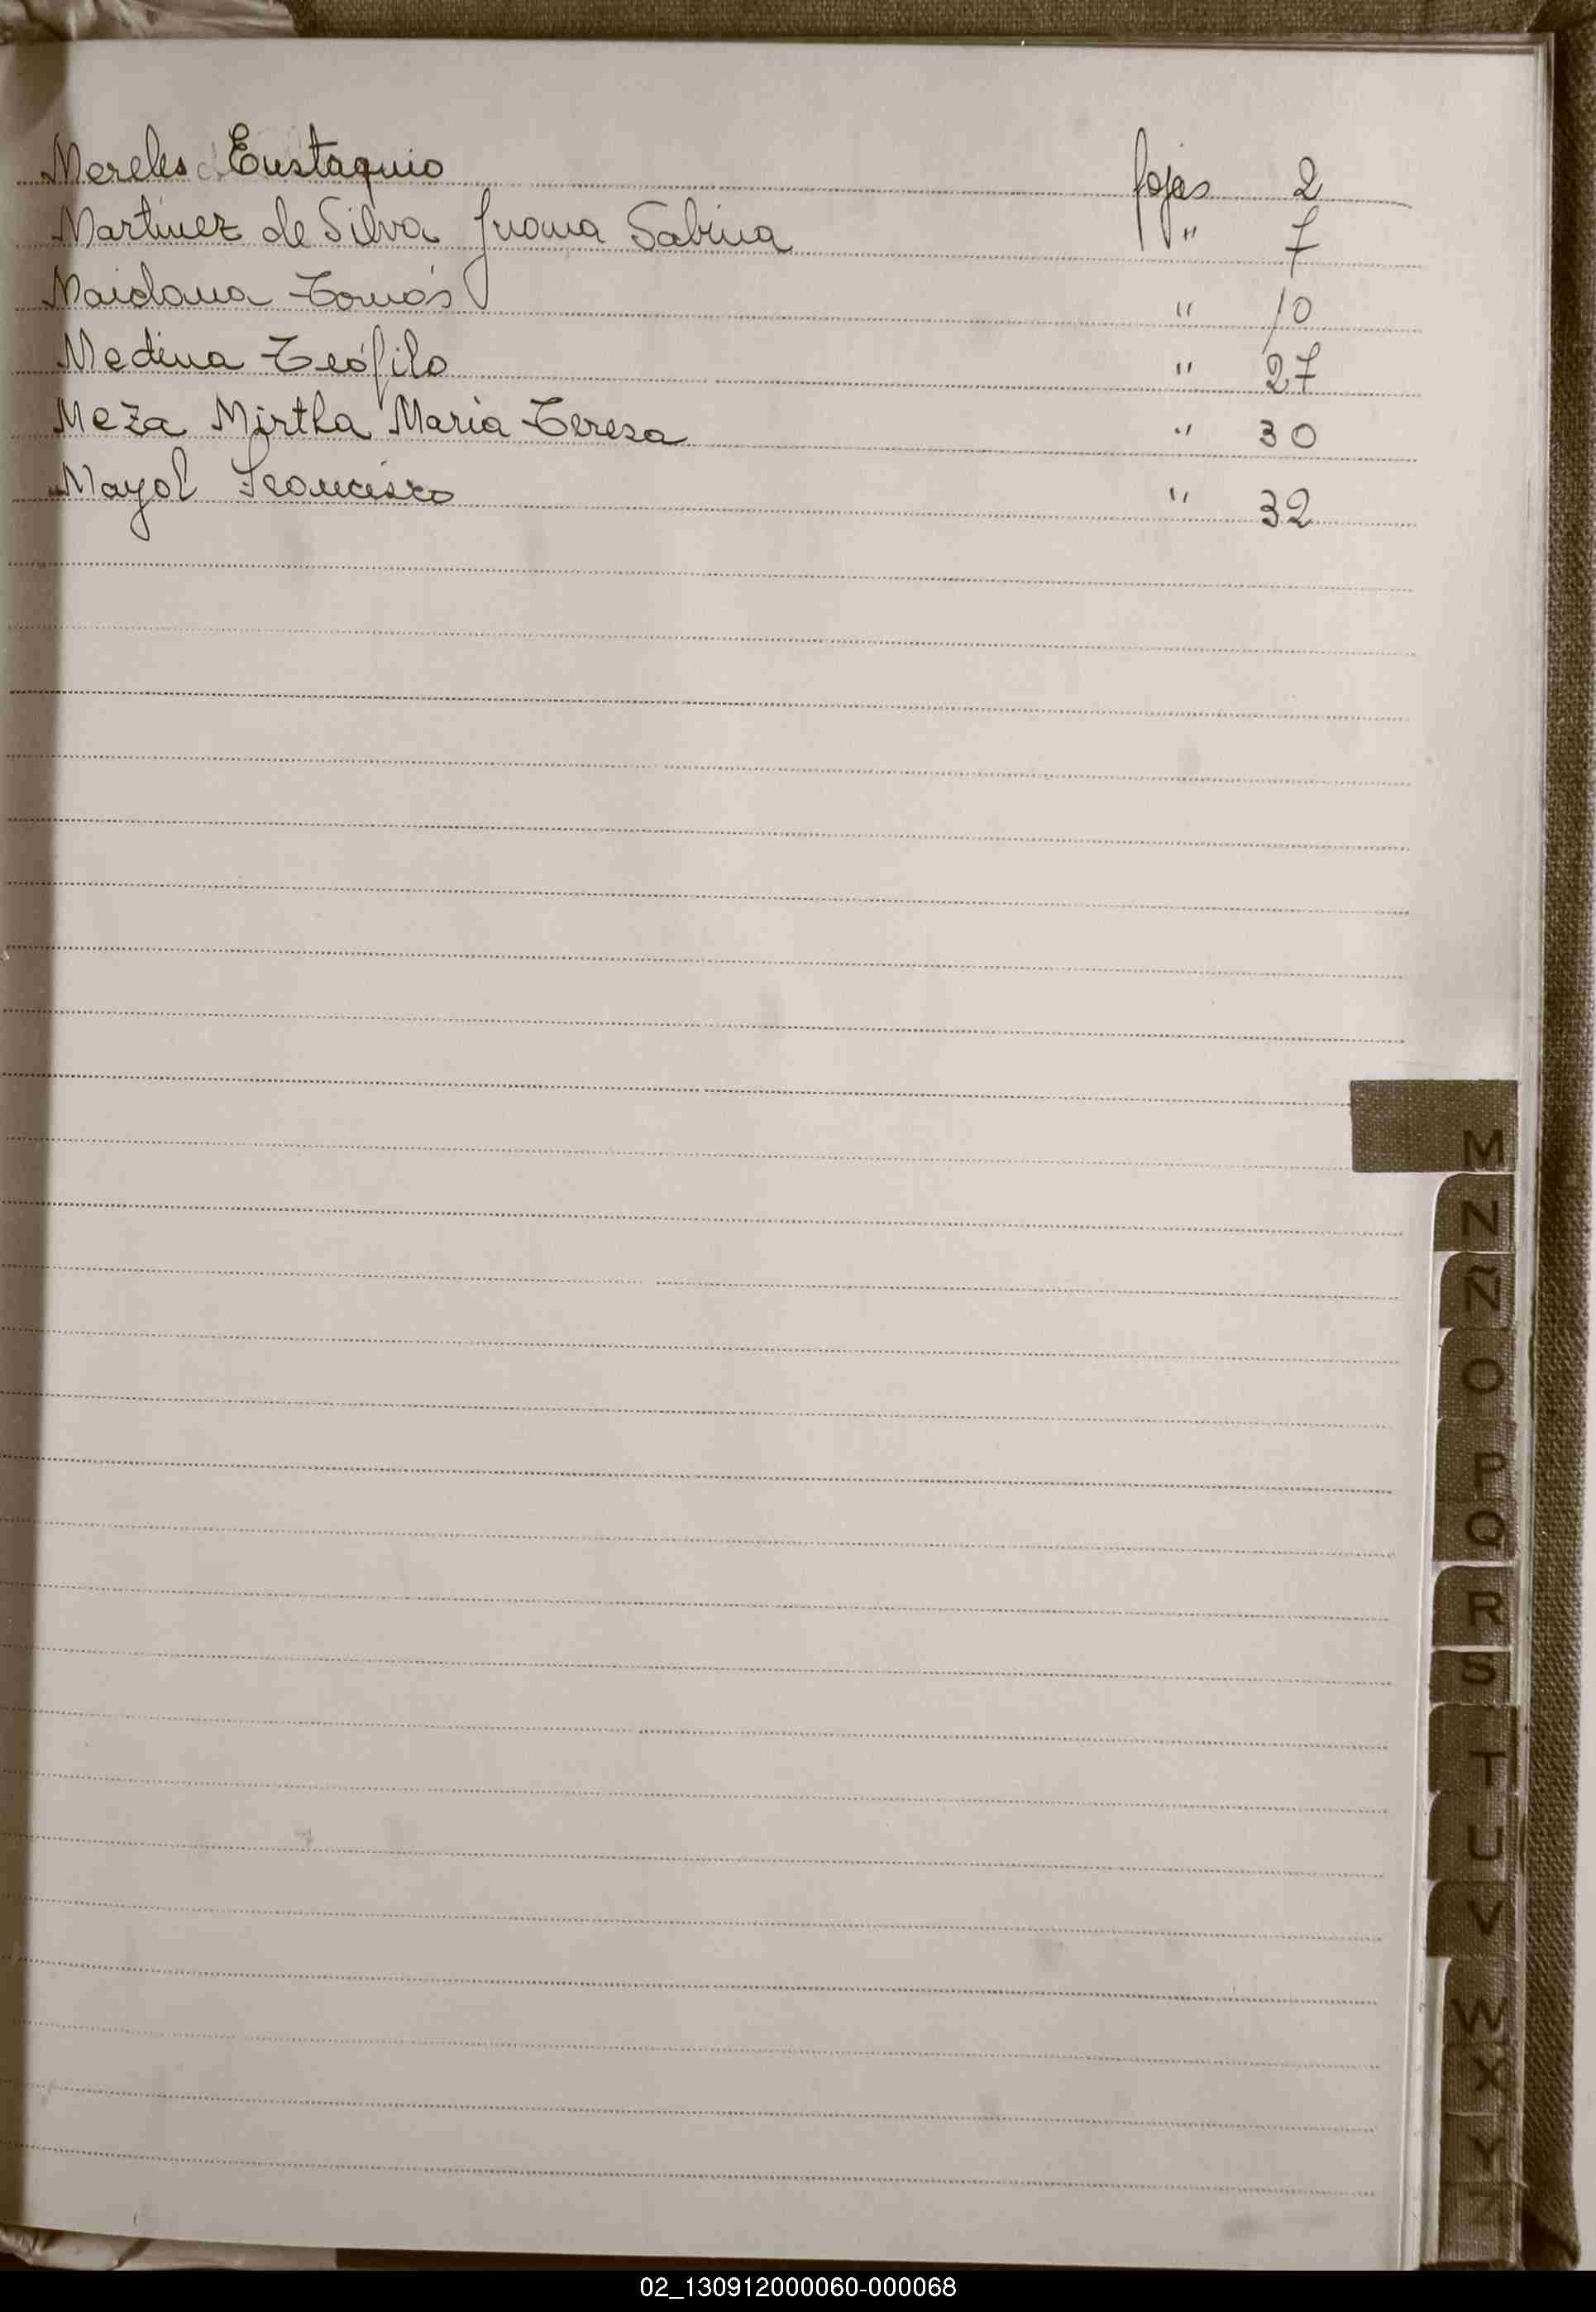 Mereles Eustaquio fojas 2
Martinez de Silva Juana Sabina " 7
Maidana Tomás " 10
Medina Teófilo " 27
Meza Mirtha Maria Teresa " 30
Mayol Francisco " 32
M
N
Ñ
O
P
Q
R
S
T
U
V
W
X
Y
Z
02_130912000060-000068